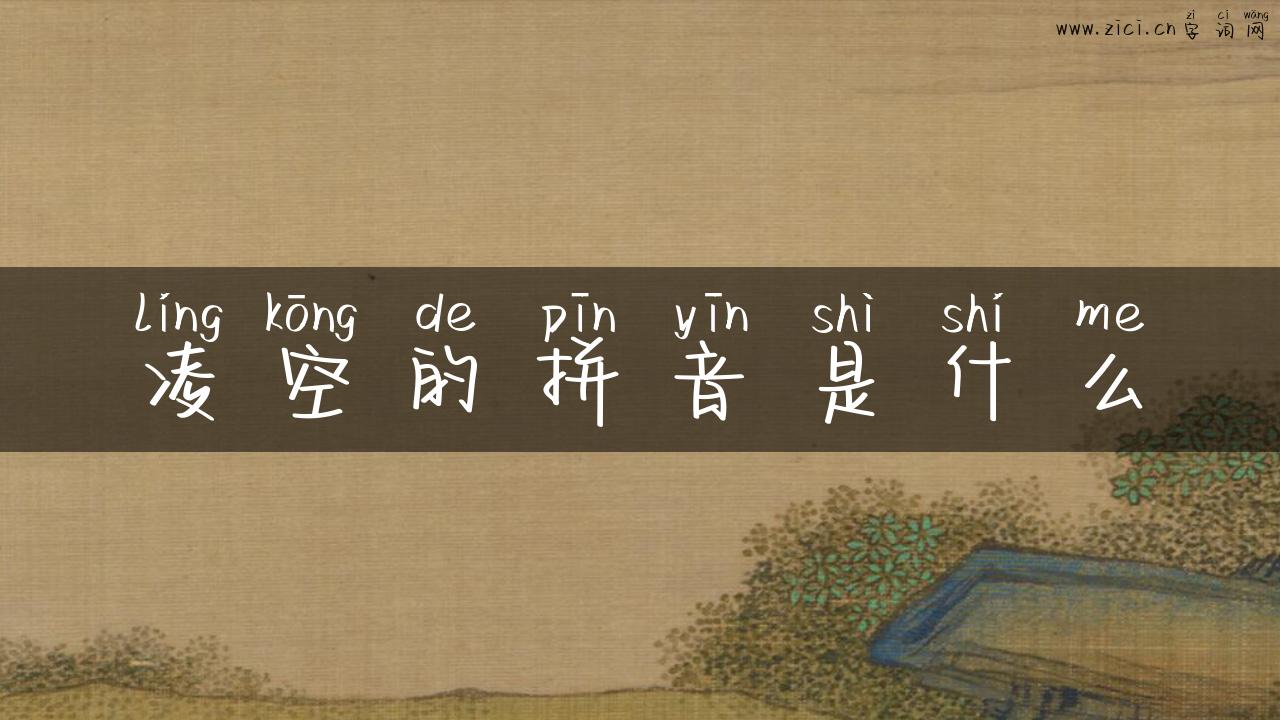 zì cí wǎng
www.zici.cn 字词网
líng kōng de pīn yīn shì shí me
凌空的拼音是什么